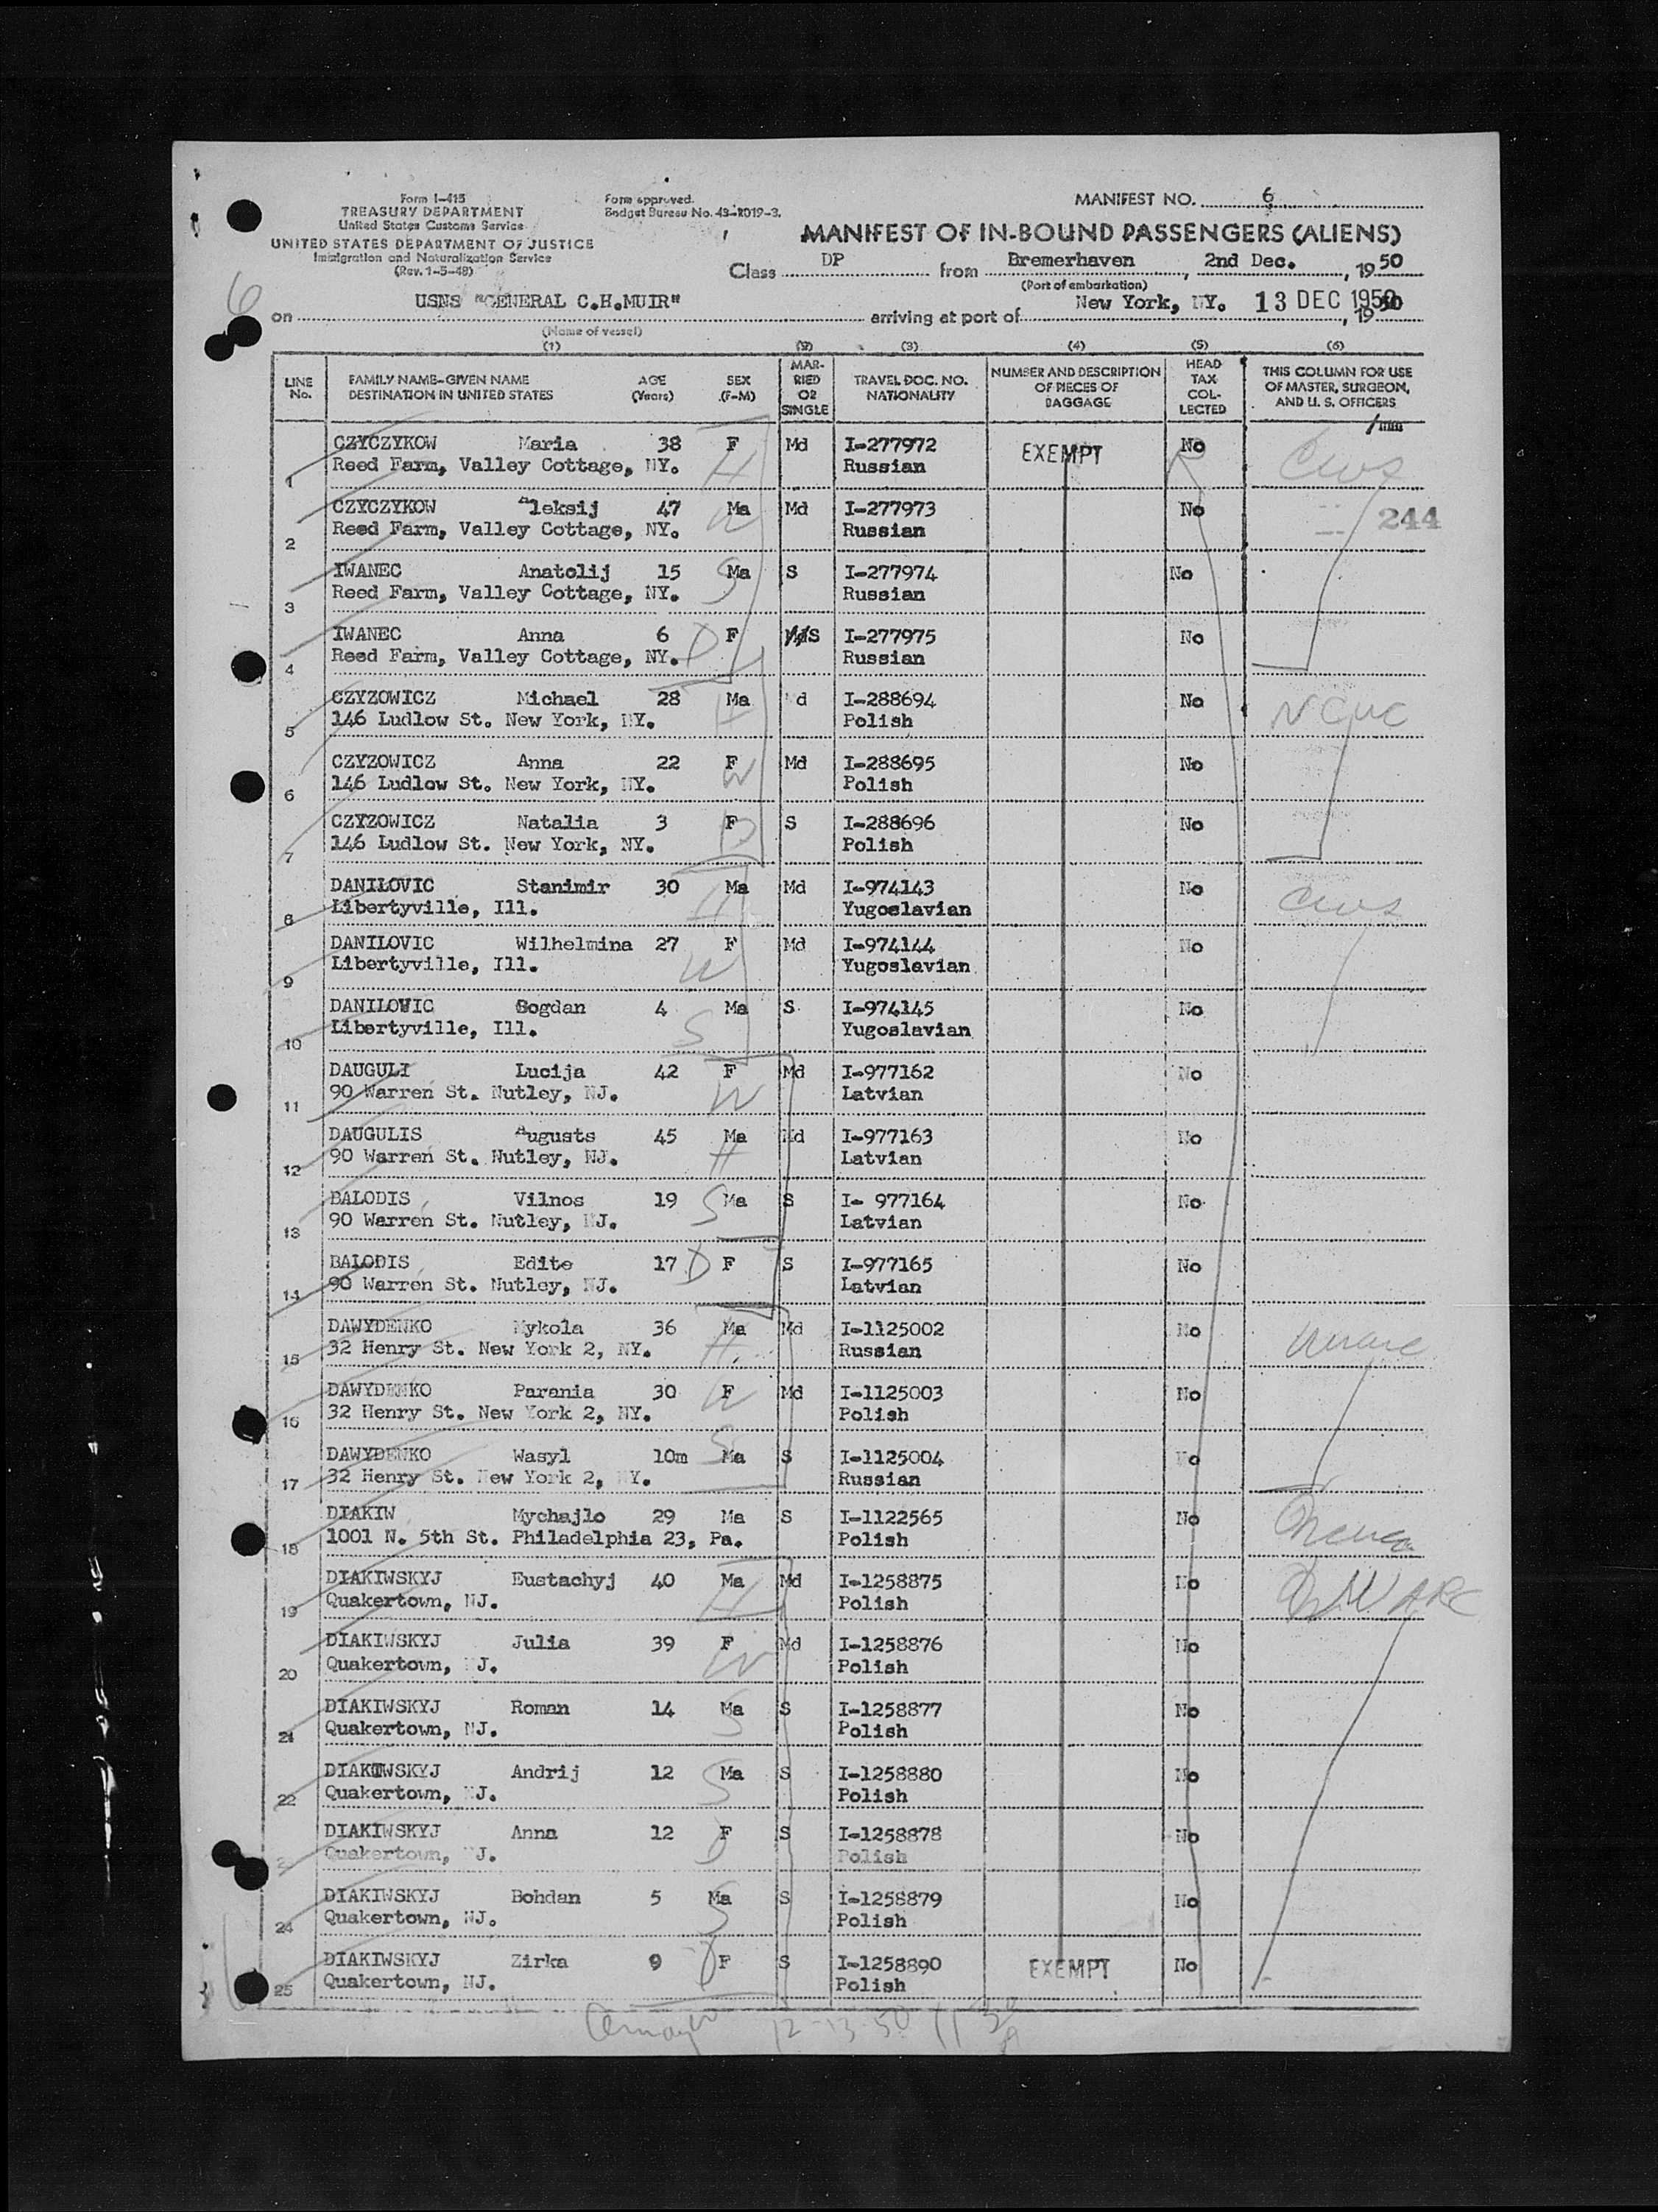 Form I-415
TREASURY DEPARTMENT
United States Customs Service
UNITED STATES DEPARTMENT OF JUSTICE
Immigration and Naturalization Service
(Rev. 1-5-48)
Form approved.
Budget Bureau No. 43-R019-3.
MANIFEST NO. 6
MANIFEST OF IN-BOUND PASSENGERS (ALIENS)
Class DP from Bremerhaven, 2nd Dec., 1950
(Port of embarkation)
6
on USNS "GENERAL C.H.MUIR" arriving at port of New York, NY. 13 DEC 1950, 1950
(Name of vessel)
(1) (2) (3) (4) (5) (6)
LINE No. FAMILY NAME-GIVEN NAME DESTINATION IN UNITED STATES AGE (Years) SEX (F-M) MARRIED OR SINGLE TRAVEL DOC. NO. NATIONALITY NUMBER AND DESCRIPTION OF PIECES OF BAGGAGE HEAD TAX COLLECTED THIS COLUMN FOR USE OF MASTER, SURGEON, AND U. S. OFFICERS
CZYCZYKOW Maria 38 F Md I-277972 EXEMPT No CWS
1 Reed Farm, Valley Cottage, NY. H Russian
CZYCZYKOW Aleksij 47 Ma Md I-277973 No 244
2 Reed Farm, Valley Cottage, NY. W Russian
IWANEC Anatolij 15 Ma S I-277974 No
3 Reed Farm, Valley Cottage, NY. S Russian
IWANEC Anna 6 F S I-277975 No
4 Reed Farm, Valley Cottage, NY. D Russian
CZYZOWICZ Michael 28 Ma d I-288694 No NCWC
5 146 Ludlow St. New York, NY. H Polish
CZYZOWICZ Anna 22 F Md I-288695 No
6 146 Ludlow St. New York, NY. W Polish
CZYZOWICZ Natalia 3 F S I-288696 No
7 146 Ludlow St. New York, NY. D Polish
DANILOVIC Stanimir 30 Ma Md I-974143 No CWS
8 Libertyville, Ill. H Yugoslavian
DANILOVIC Wilhelmina 27 F Md I-974144 No
9 Libertyville, Ill. W Yugoslavian
DANILOVIC Bogdan 4 Ma S I-974145 No
10 Libertyville, Ill. S Yugoslavian
DAUGULI Lucija 42 F Md I-977162 No
11 90 Warren St. Nutley, NJ. W Latvian
DAUGULIS Augusts 45 Ma Md I-977163 No
12 90 Warren St. Nutley, NJ. H Latvian
BALODIS Vilnos 19 S Ma S I- 977164 No
13 90 Warren St. Nutley, NJ. Latvian
BALODIS Edite 17 D F S I-977165 No
14 90 Warren St. Nutley, NJ. Latvian
DAWYDENKO Mykola 36 Ma Md I-1125002 No
15 32 Henry St. New York 2, NY. H Russian
DAWYDENKO Parania 30 F Md I-1125003 No
16 32 Henry St. New York 2, NY. W Polish
DAWYDENKO Wasyl 10m Ma S I-1125004 No
17 32 Henry St. New York 2, NY. S Russian
DIAKIW Mychajlo 29 Ma S I-1122565 No
18 1001 N. 5th St. Philadelphia 23, Pa. Polish
DIAKIWSKYJ Eustachyj 40 Ma Md I-1258875 No
19 Quakertown, NJ. H Polish
DIAKIWSKYJ Julia 39 F Md I-1258876 No
20 Quakertown, NJ. W Polish
DIAKIWSKYJ Roman 14 Ma S I-1258877 No
21 Quakertown, NJ. S Polish
DIAKIWSKYJ Andrij 12 Ma S I-1258880 No
22 Quakertown, NJ. S Polish
DIAKIWSKYJ Anna 12 F S I-1258878 No
Quakertown, NJ. D Polish
DIAKIWSKYJ Bohdan 5 Ma S I-1258879 No
24 Quakertown, NJ. S Polish
DIAKIWSKYJ Zirka 9 D F S I-1258890 EXEMPT No
25 Quakertown, NJ. Polish
12-13-50